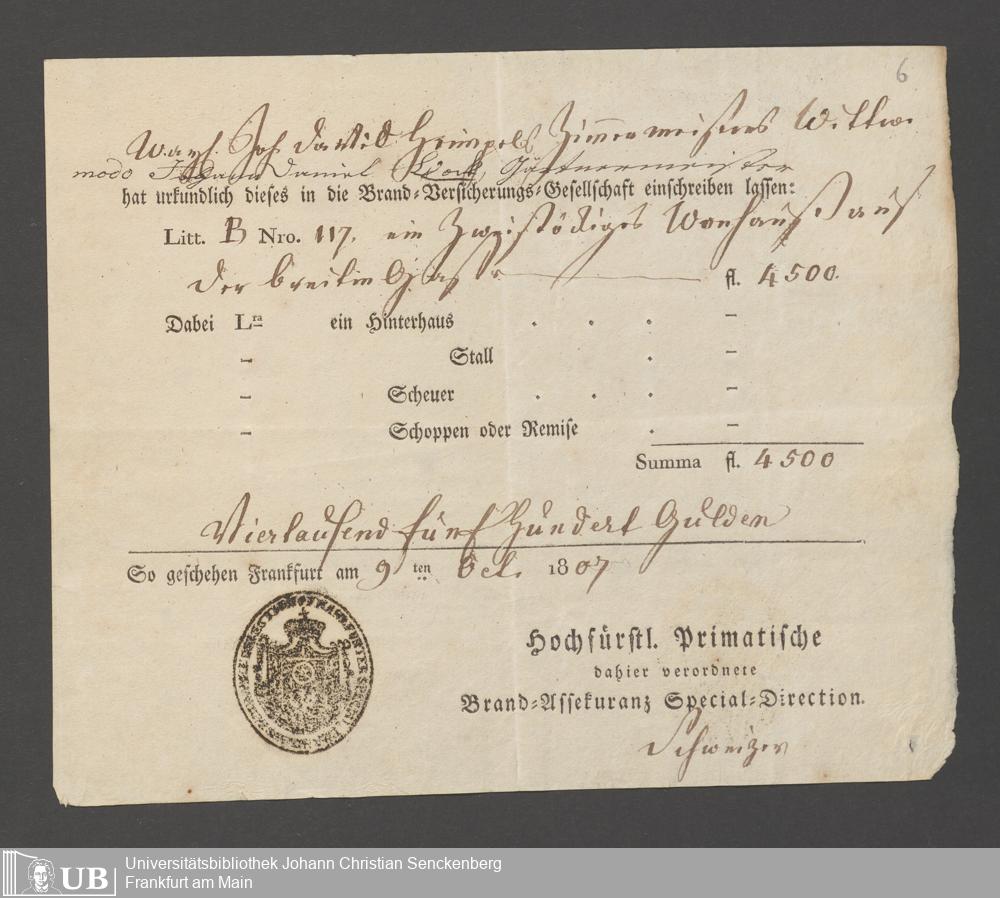 6
Joh. David Heimpels Zimmermeisters Wittwe
modo Johann Daniel Klock, Gärtnermeister
hat urkundlich dieses in die Brand-Versicherungs-Gesellschaft einschreiben lassen:
Litt. B Nro. 117. ein Zweistödiges Wonhauß auf
der breiten Gasse fl. 4500.
Dabei Lra ein Hinterhaus . . . –
– Stall . –
– Scheuer . . . –
– Schoppen oder Remise . –
Summa fl. 4500
Viertausend fünf Hundert Gulden
So geschehen Frankfurt am 9 ten Oct. 1807
Hochfürstl. Primatische
dahier verordnete
Brand-Assekuranz Special-Direction.
Schweizer
UB
Universitätsbibliothek Johann Christian Senckenberg
Frankfurt am Main